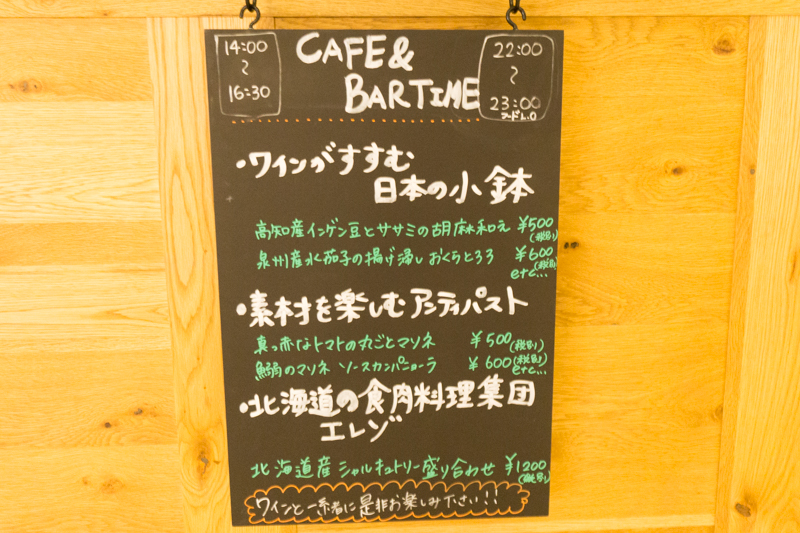 14:00
〜
16:30
CAFE &
BARTIME
22:00
〜
23:00
フードL.O
・ワインがすすむ
日本の小鉢
高知産インゲン豆とササミの胡麻和え ¥500
(税別)
泉州産水茄子の揚げ浸し おくらとろろ ¥600
(税別)
etc...
・素材を楽しむアンティパスト
真っ赤なトマトの丸ごとマリネ ¥500(税別)
鰯のマリネ ソースカンパニョーラ ¥600(税別)
etc...
・北海道の食肉料理集団
エレゾ
北海道産シャルキュトリー盛り合わせ ¥1200
(税別)
ワインと一緒に是非お楽しみ下さい!!